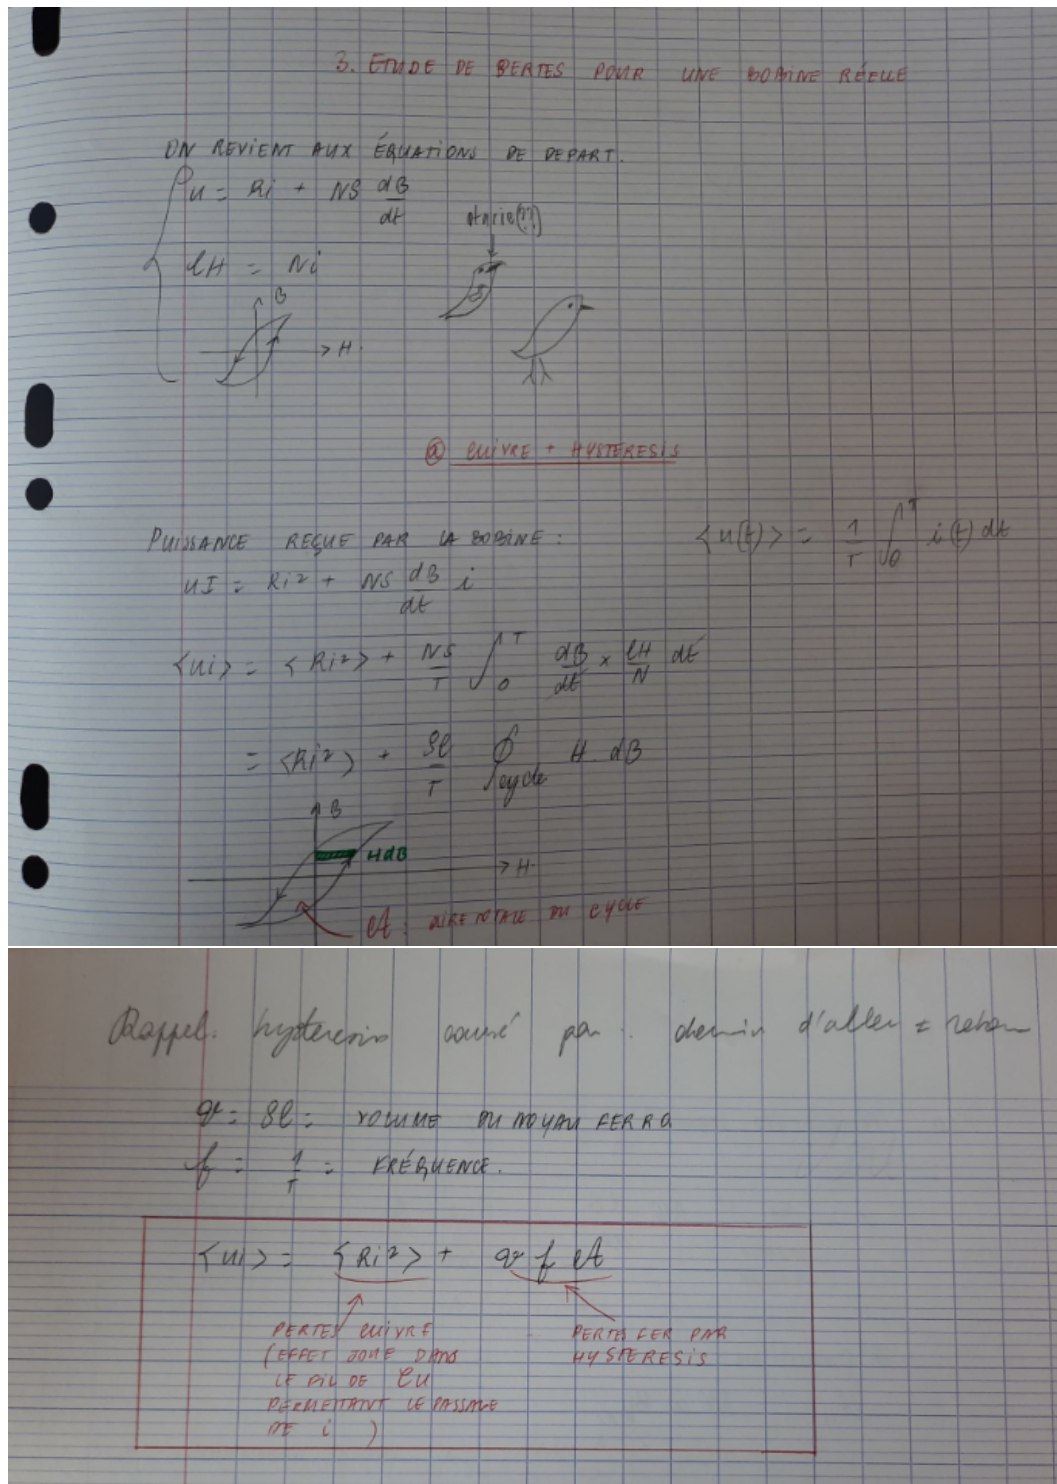 3. ETUDE DE PERTES POUR UNE BOBINE RÉELLE
ON REVIENT AUX ÉQUATIONS DE DEPART.
u = Ri + NS dB/dt
otarie(??)
lH = Ni
B
H
ⓐ CUIVRE + HYSTERESIS
PUISSANCE REÇUE PAR LA BOBINE :
<u(t)> = 1/T ∫₀ᵀ i(t) dt
uI = Ri² + NS dB/dt i
<ui> = <Ri²> + NS/T ∫₀ᵀ dB/dt × lH/N dt
= <Ri²> + Sl/T ∮cycle H.dB
B
HdB
H
A : AIRE TOTALE DU CYCLE
Rappel. hysteresis causé par : chemin d'aller ≠ retour
v = Sl = VOLUME DU NOYAU FERRO.
f = 1/T = FRÉQUENCE.
<ui> = <Ri²> + v f A
PERTES CUIVRE
(EFFET JOULE DANS
LE FIL DE Cu
PERMETTANT LE PASSAGE
DE i )
PERTES FER PAR
HYSTERESIS